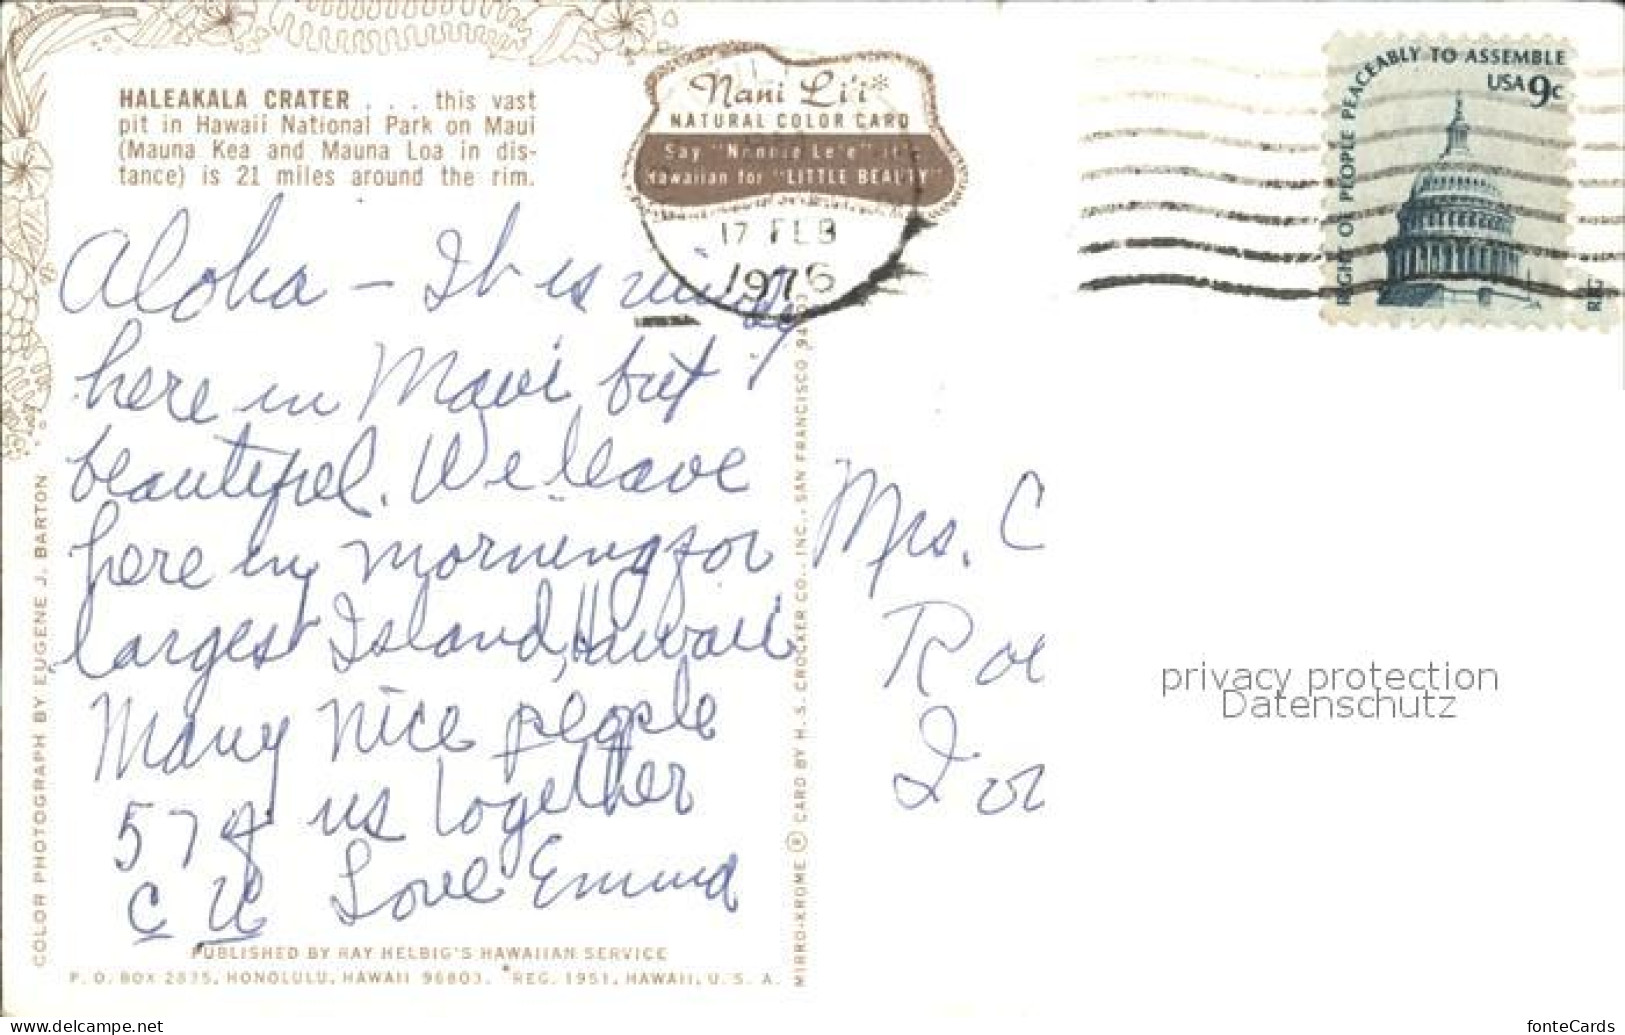 HALEAKALA CRATER . . . this vast
pit in Hawaii National Park on Maui
(Mauna Kea and Mauna Loa in dis-
tance) is 21 miles around the rim.
Nani Li'i*
NATURAL COLOR CARD
Say "Nannie Le'e" it's
Hawaiian for "LITTLE BEAUTY"
17 FEB
1976
RIGHT OF PEOPLE PEACEABLY TO ASSEMBLE
USA 9c
Aloha - It is windy
here in Maui but
beautiful. We leave
here in morning for
largest Island, Hawaii
Many nice people
57 of us together
C U Love Emma
Mrs. C
Ro
COLOR PHOTOGRAPH BY EUGENE J. BARTON
MIRRO-KROME ® CARD BY H. S. CROCKER CO., INC., SAN FRANCISCO
PUBLISHED BY RAY HELBIG'S HAWAIIAN SERVICE
P. O. BOX 2835, HONOLULU, HAWAII 96803. *REG. 1951, HAWAII, U. S. A.
privacy protection
Datenschutz
www.delcampe.net
fonteCards